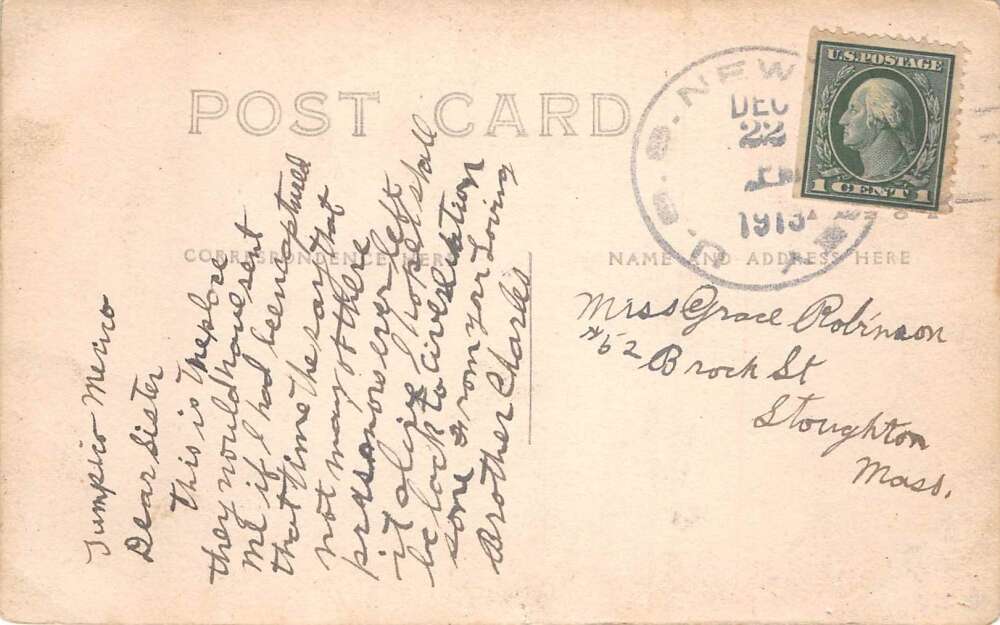 POST CARD
U.S. POSTAGE
1 CENT 1
U.S.S. NEW
DEC
22
1913
CORRESPONDENCE HERE
NAME AND ADDRESS HERE
Miss Grace Robinson
#52 Brock St
Stoughton
Mass.
Tumpico Mexico
Dear Sister
This is place
they would have sent
me if I had been captured
that time the say that
not many of there
prasanors ever left
it alive I hope I shall
be back to civeleation
some from your Loving
Brother Charles